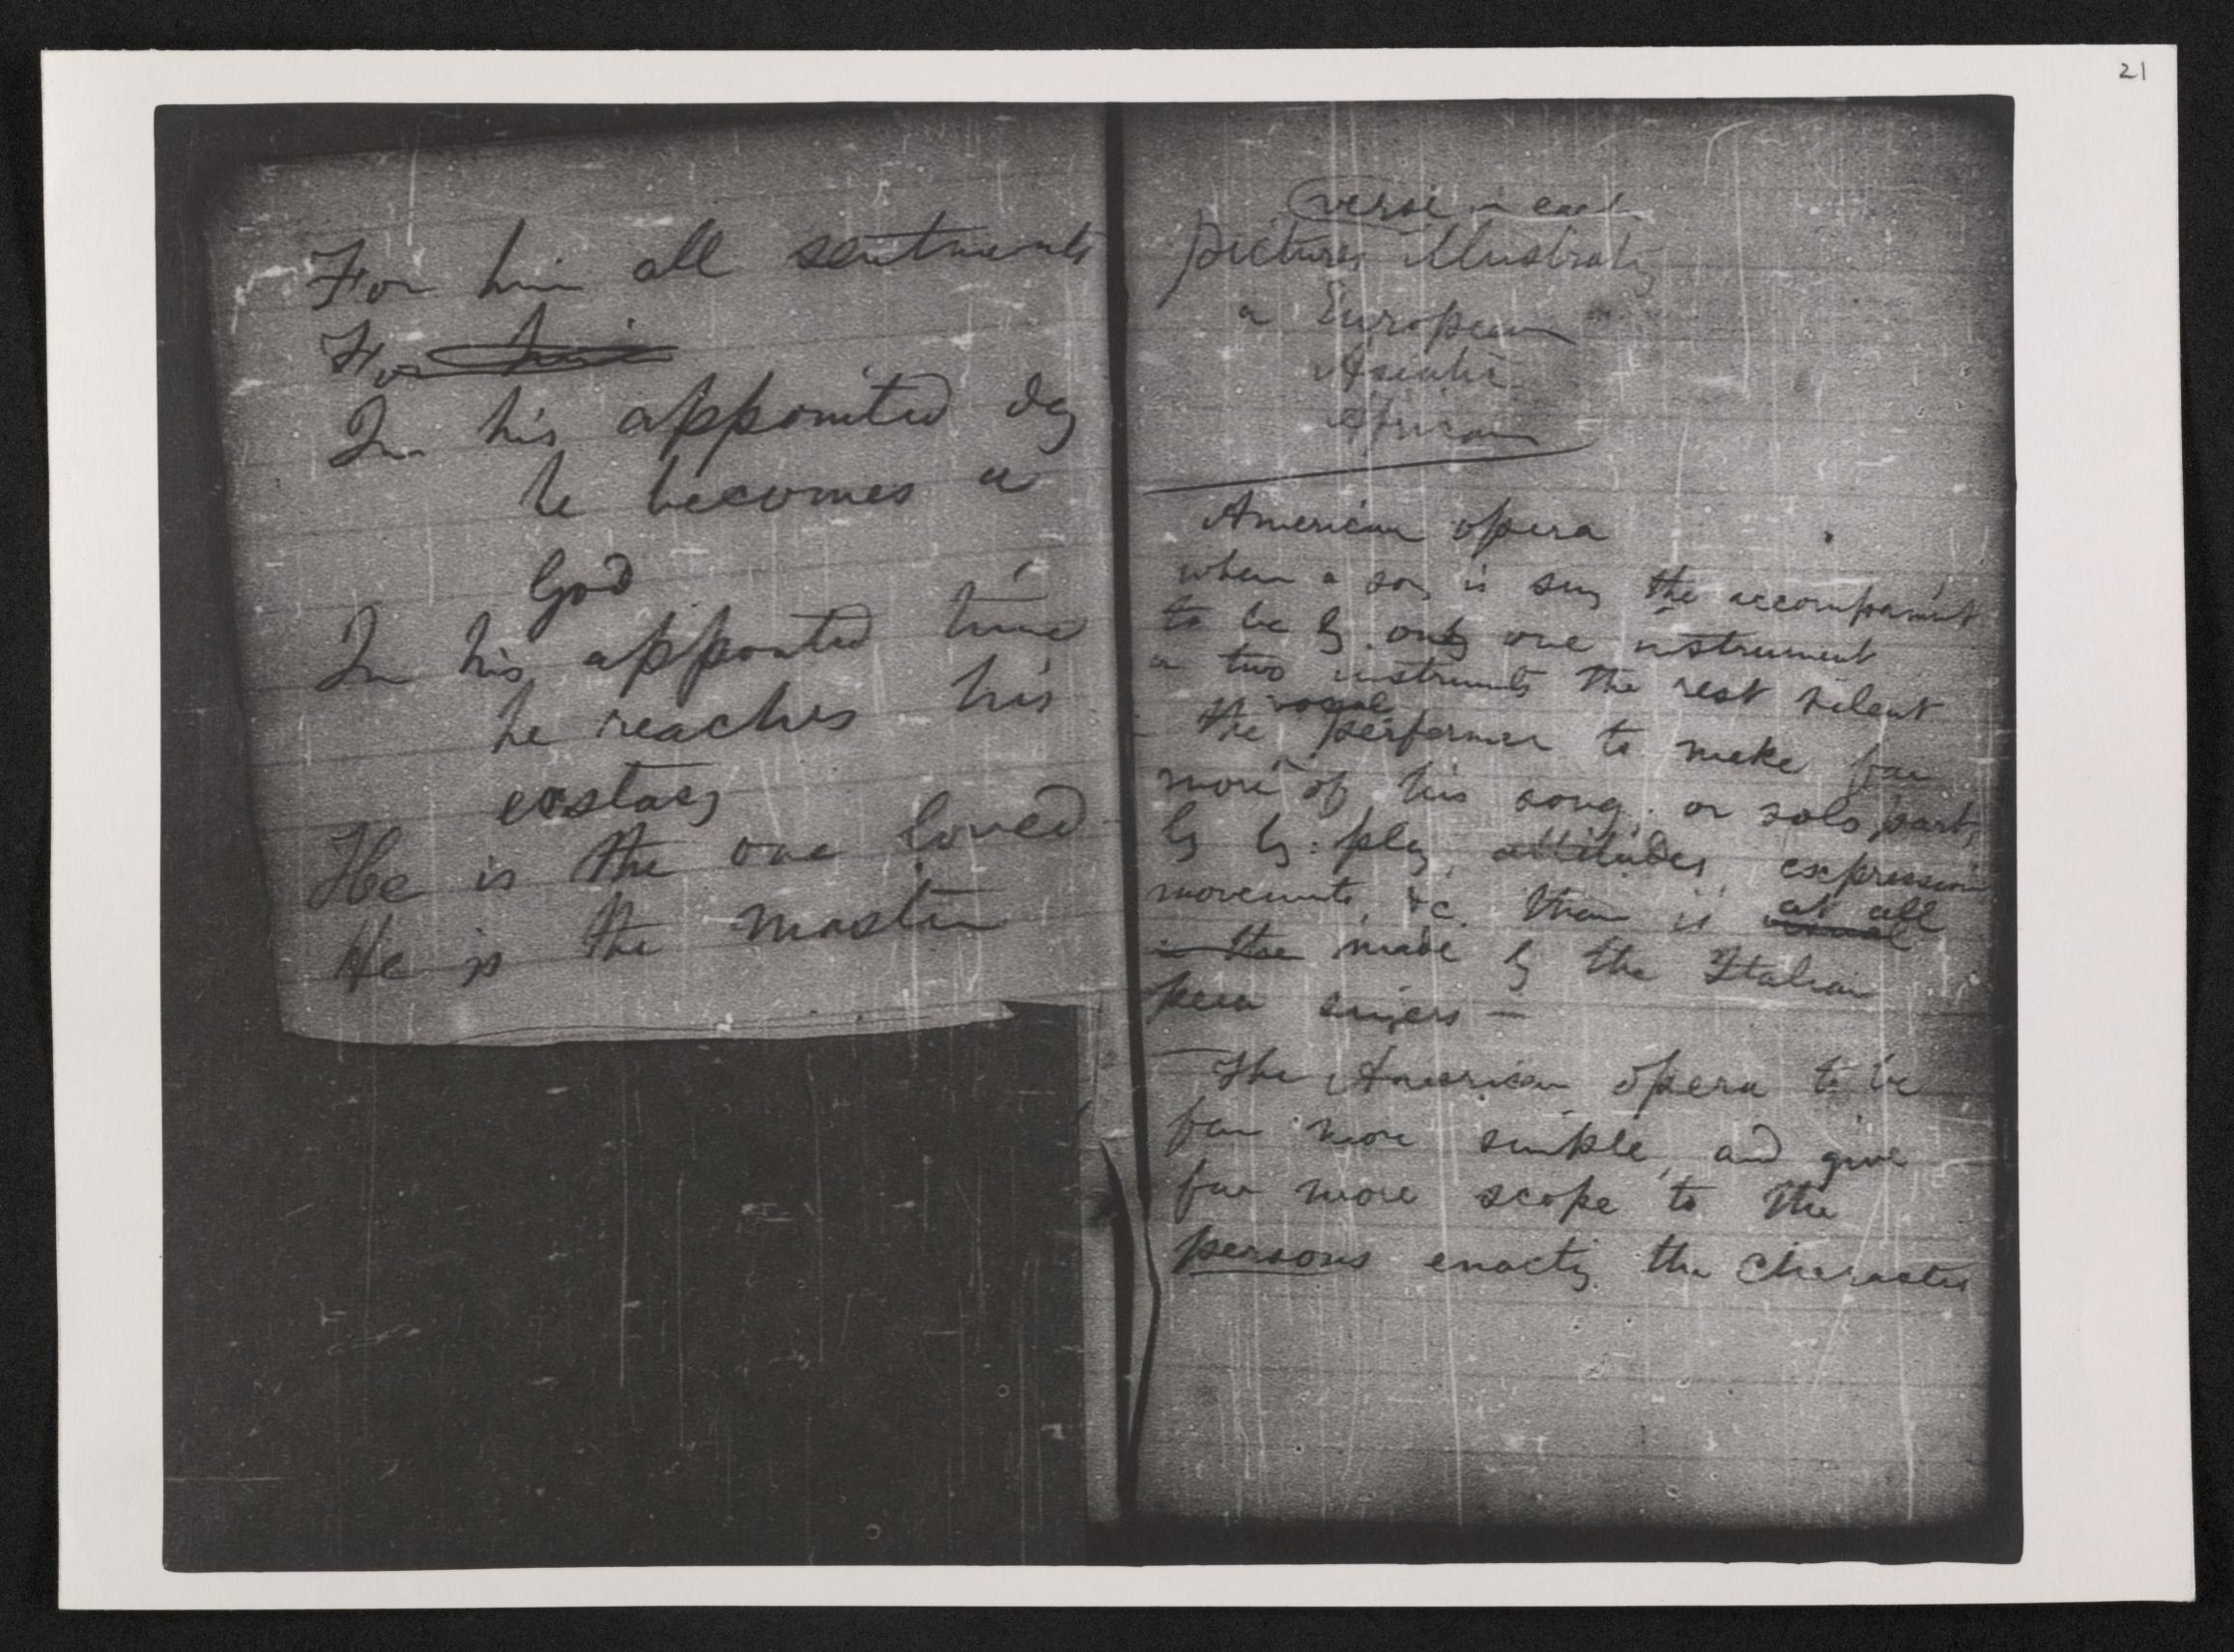 21
For him all sentiments
For him
In his appointed day
he becomes a
God
In his appointed time
he reaches his
ecstasy
He is the one loved
He is the master
verse in each
pictures illustrating
a European
Asiatic
African
American opera
when a song is sung the accompaniment
to be by only one instrument
or two instruments the rest silent
the vocal performer to make far
more of his song, or solo part,
by by-play, attitudes, expressions
movements, &c. than is at all
in the made by the Italian
pera singers —
The American opera to be
far more simple, and give
far more scope to the
persons enacting the characters